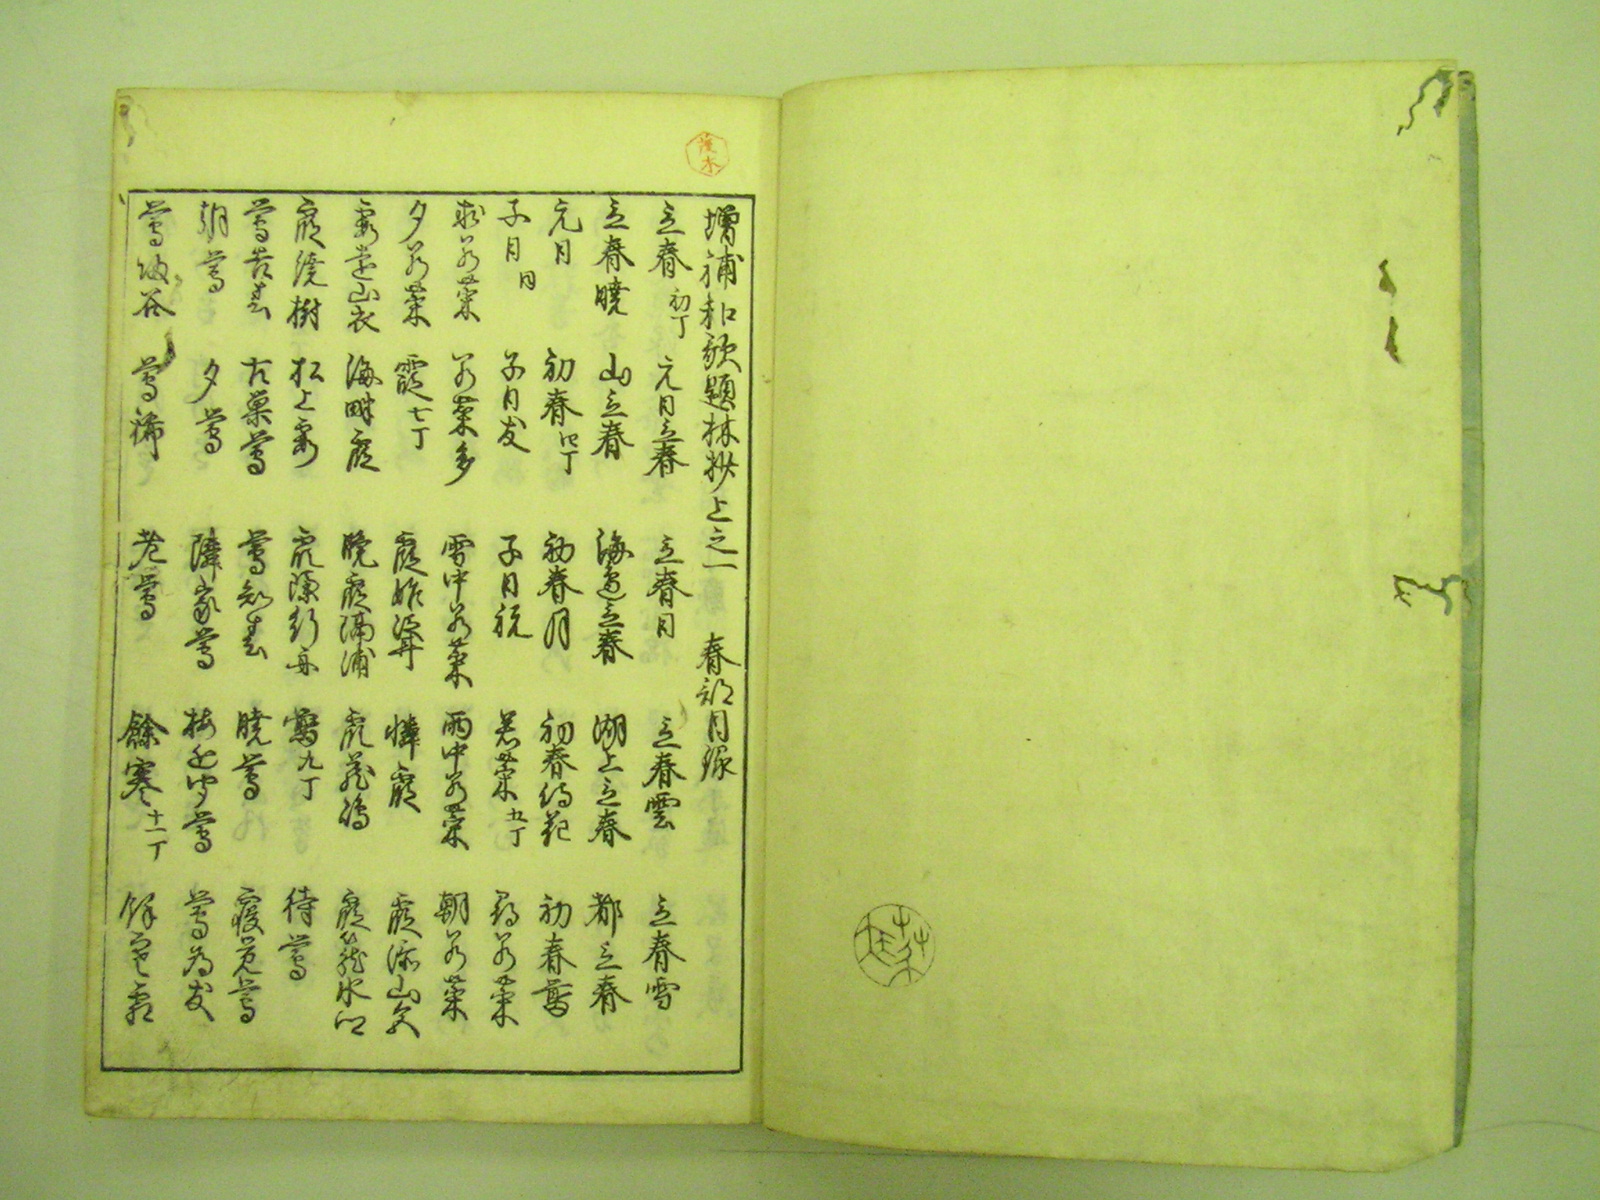 増補和歌題林抄上之一 春部目録
立春 初丁 元日立春 立春日 立春雲 立春雪
立春暁 山立春 海邊立春 湖上立春 都立春
元日 初春 四丁 初春月 初春待花 初春鶯
子日 同 子日友 子日祝 若菜 五丁 尋若菜
求若菜 若菜多 雪中若菜 雨中若菜 朝若菜
夕若菜 霞 七丁 霞 霞 霞添山気
霞 山衣 海畔霞 晩霞隔浦 霞 霞 氷
霞繞樹 松上霞 霞隠行舟 鶯 九丁 待鶯
鶯告春 古巣鶯 鶯知春 暁鶯 寝覚鶯
朝鶯 夕鶯 隣家鶯 梅近聞鶯 鶯為友
鶯 谷 鶯稀 老鶯 餘寒 十一丁 餘寒霜